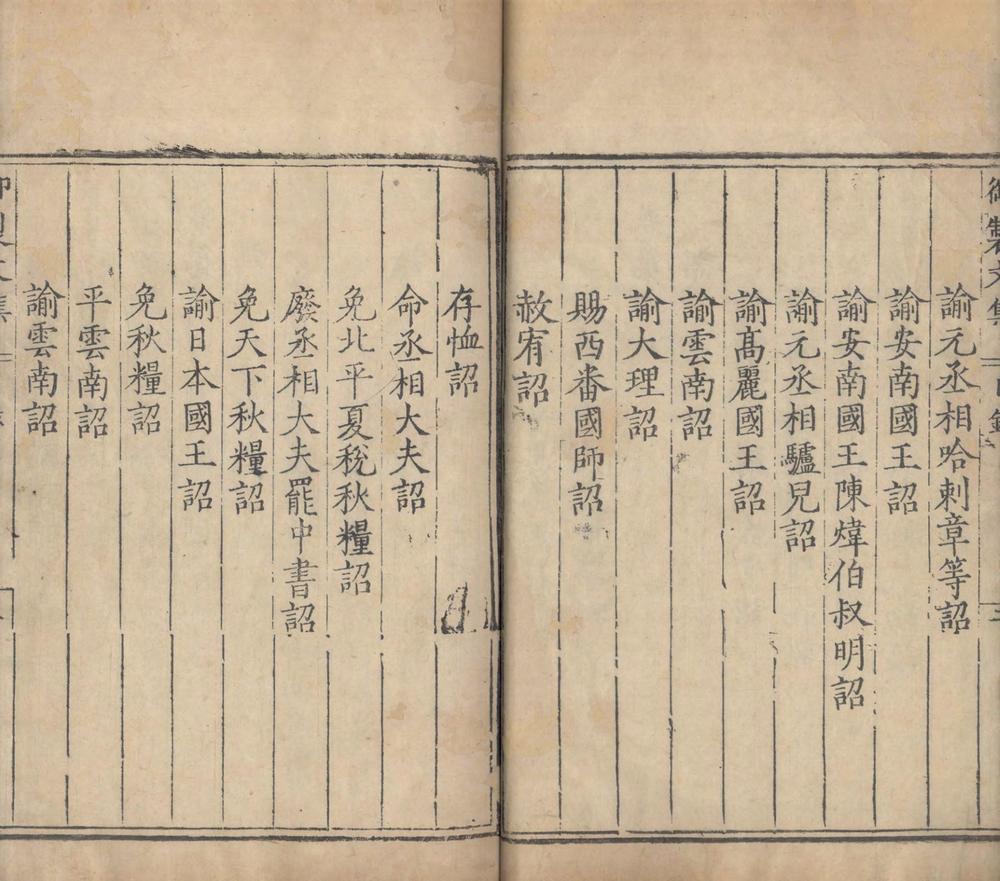 御製文集
諭元丞相哈剌章等詔
諭安南國王詔
諭安南國王陳煒伯叔明詔
諭元丞相驢兒詔
諭髙麗國王詔
諭雲南詔
諭大理詔
賜西番國師詔
赦宥詔
存恤詔
命丞相大夫詔
免北平夏稅秋糧詔
廢丞相大夫罷中書詔
免天下秋糧詔
諭日本國王詔
免秋糧詔
平雲南詔
諭雲南詔